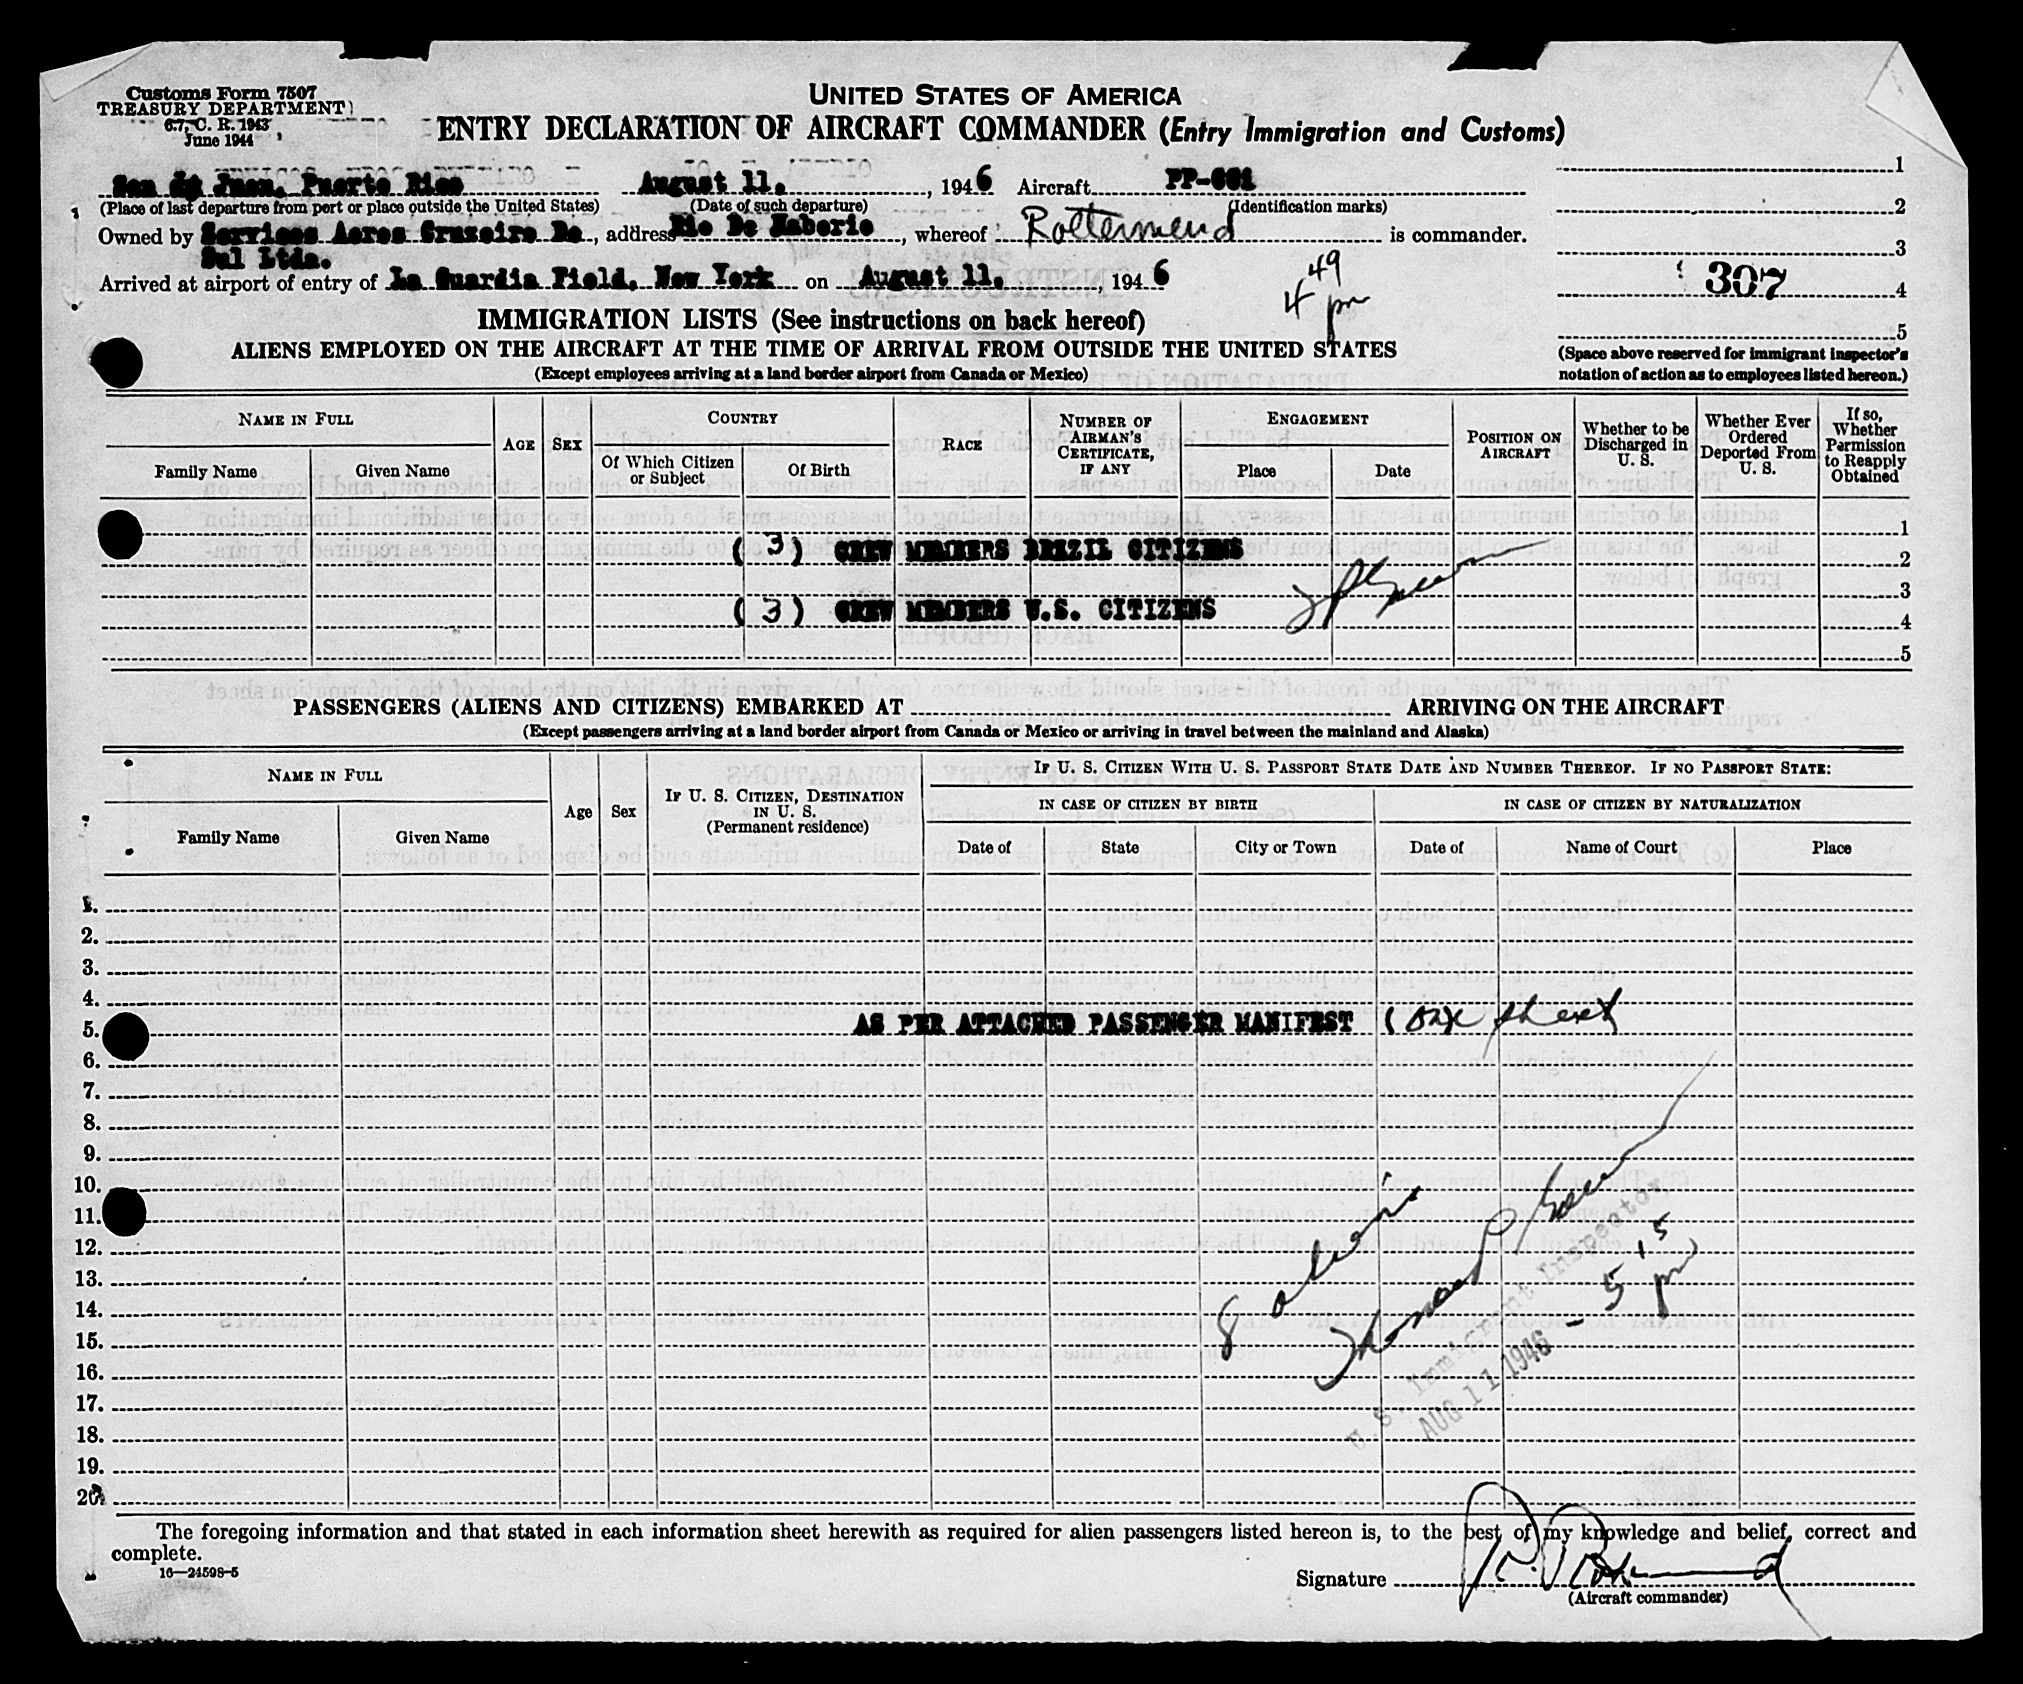 Customs Form 7507
TREASURY DEPARTMENT
6.7, C. R. 1943
June 1944
UNITED STATES OF AMERICA
ENTRY DECLARATION OF AIRCRAFT COMMANDER (Entry Immigration and Customs)
San Juan, Puerto Rico August 11, 1946 Aircraft PP-
(Place of last departure from port or place outside the United States) (Date of such departure) (Identification marks)
Owned by Services Aeros Cruzeire Do, address Rio De, whereof Rottermend is commander.
Sul Ltda.
Arrived at airport of entry of La Guardia Field, New York on August 11, 1946
4 49 pm
1
2
3
307 4
5
(Space above reserved for immigrant inspector's
notation of action as to employees listed hereon.)
IMMIGRATION LISTS (See instructions on back hereof)
ALIENS EMPLOYED ON THE AIRCRAFT AT THE TIME OF ARRIVAL FROM OUTSIDE THE UNITED STATES
(Except employees arriving at a land border airport from Canada or Mexico)
NAME IN FULL
Family Name Given Name
AGE SEX
COUNTRY
Of Which Citizen or Subject Of Birth
RACE
NUMBER OF AIRMAN'S CERTIFICATE, IF ANY
ENGAGEMENT
Place Date
POSITION ON AIRCRAFT
Whether to be Discharged in U. S.
Whether Ever Ordered Deported From U. S.
If so, Whether Permission to Reapply Obtained
1
( 3 ) CREW MEMBERS BRZIL CITIZENS
2
3
( 3 ) CREW MEMBERS U.S. CITIZENS
4
5
PASSENGERS (ALIENS AND CITIZENS) EMBARKED AT ARRIVING ON THE AIRCRAFT
(Except passengers arriving at a land border airport from Canada or Mexico or arriving in travel between the mainland and Alaska)
NAME IN FULL
Family Name Given Name
Age Sex
IF U. S. CITIZEN, DESTINATION IN U. S.
(Permanent residence)
IF U. S. CITIZEN WITH U. S. PASSPORT STATE DATE AND NUMBER THEREOF. IF NO PASSPORT STATE:
IN CASE OF CITIZEN BY BIRTH IN CASE OF CITIZEN BY NATURALIZATION
Date of State City or Town Date of Name of Court Place
1.
2.
3.
4.
AS PER ATTACHED PASSENGER MANIFEST ( one sheet
5.
6.
7.
8.
9.
10.
11.
12.
13.
14.
15.
16.
17.
18.
19.
20.
8 aliens
U. S. Immigrant Inspector,
AUG 11 1946 - 5 15 pm
The foregoing information and that stated in each information sheet herewith as required for alien passengers listed hereon is, to the best of my knowledge and belief, correct and
complete.
16—24598-5
Signature
(Aircraft commander)